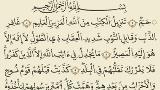 بِسْمِ ٱللَّهِ ٱلرَّحْمَٰنِ ٱلرَّحِيمِ
حمٓ ۝ تَنزِيلُ ٱلْكِتَٰبِ مِنَ ٱللَّهِ ٱلْعَزِيزِ ٱلْعَلِيمِ ۝ غَافِرِ
ٱلذَّنۢبِ وَقَابِلِ ٱلتَّوْبِ شَدِيدِ ٱلْعِقَابِ ذِى ٱلطَّوْلِ لَآ إِلَٰهَ إِلَّا
هُوَ إِلَيْهِ ٱلْمَصِيرُ ۝ مَا يُجَٰدِلُ فِىٓ ءَايَٰتِ ٱللَّهِ إِلَّا ٱلَّذِينَ كَفَرُوا۟
فَلَا يَغْرُرْكَ تَقَلُّبُهُمْ فِى ٱلْبِلَٰدِ ۝ كَذَّبَتْ قَبْلَهُمْ قَوْمُ نُوحٍ
وَٱلْأَحْزَابُ